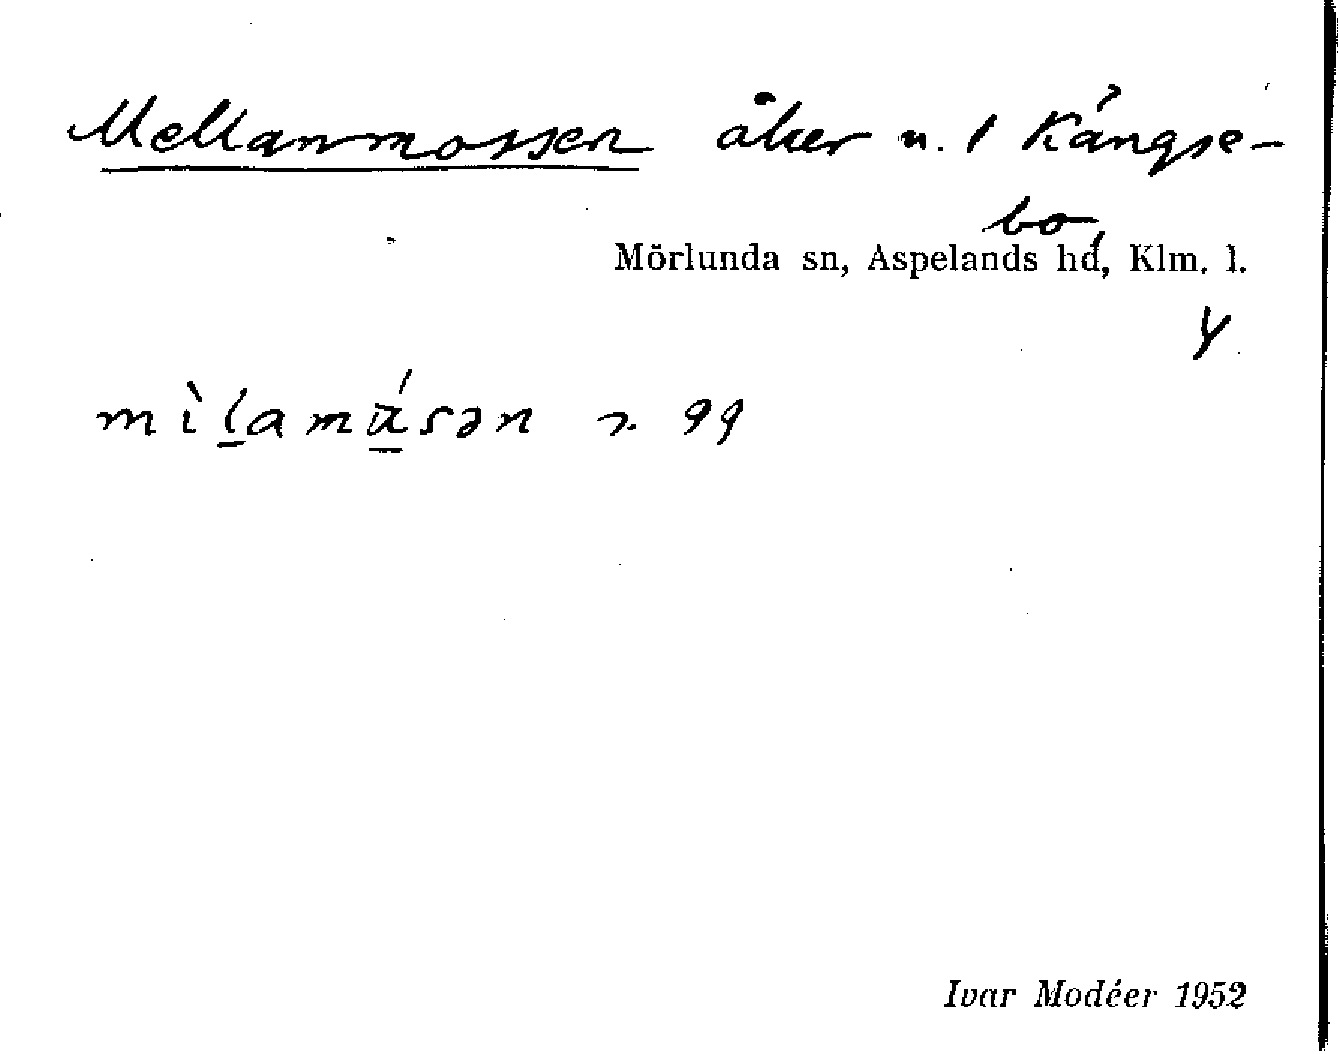 Mellanmossen åker n. 1 Kångse-
bo,
Mörlunda sn, Aspelands hd, Klm. l.
Y
Ivar Modéer 1952